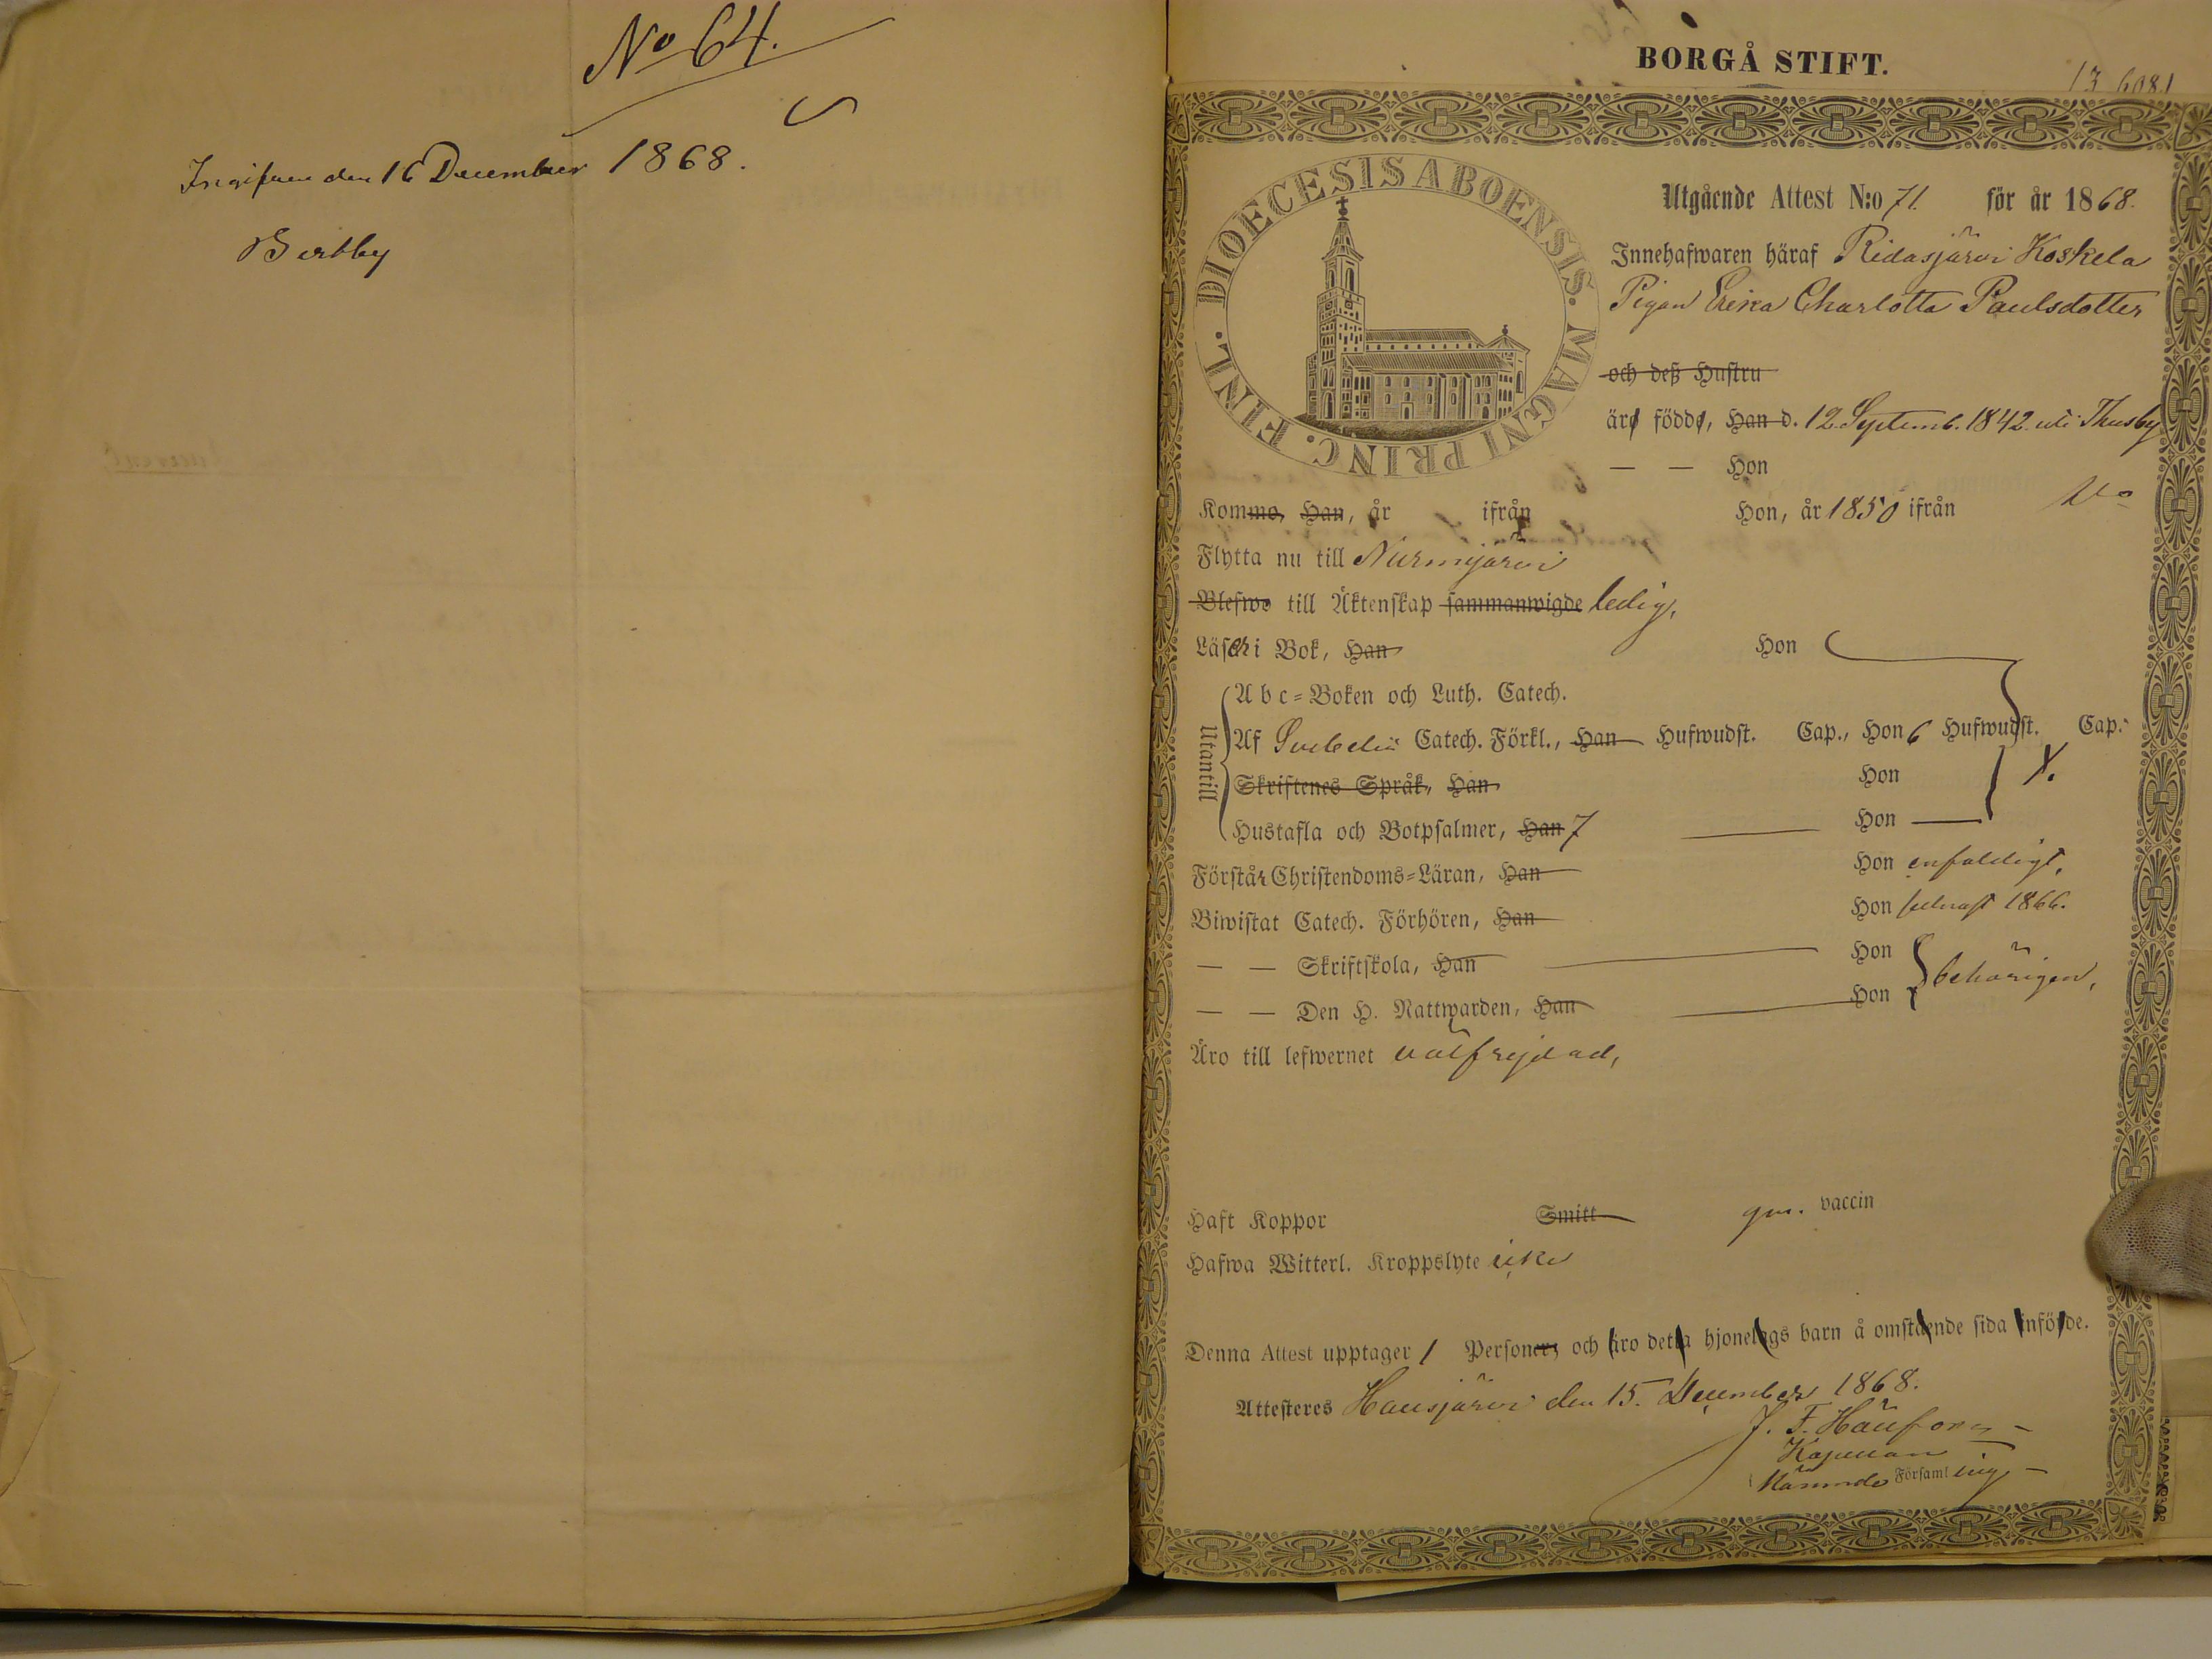 No 64.
Ingifven den 16 December 1868.
Bertby
BORGÅ STIFT.
DIOECESIS ABOENSIS. MAGNI PRINC. FINL.
Utgående Attest N:o 71. för år 1868.
Innehafwaren häraf Ridasjärvi Koskela
Pigan Erika Charlotta Paulsdotter
och deß Hustru
äro födde, Han d. 12 Septemb. 1842 uti Thusby
— — Hon
Komme, Han, år ifrån Hon, år 1850 ifrån
Flytta nu till Nurmijärvi
Blefwo till Äktenskap sammanwigde ledig,
Läser i Bok, Han Hon
Utantill
Abc=Boken och Luth. Catech.
Af Svebelii Catech. Förkl., Han Hufwudst. Cap., Hon 6 Hufwudst. Cap.
Skriftenes Språk, Han Hon X.
Hustafla och Botpsalmer, Han 7 Hon
Förstår Christendoms=Läran, Han Hon enfaldigt,
Biwistat Catech. Förhören, Han Hon sednast 1866.
— — Skriftskola, Han Hon
— — Den H. Nattwarden, Han Hon behörigen,
Äro till lefwernet välfrejdad,
Haft Koppor Smitt gm. vaccin
Hafwa Witterl. Kroppslyte icke
Denna Attest upptager 1 Personer, och äro detta hjonelags barn å omstående sida införde.
Attesteres Hausjärvi den 15. December 1868.
Kapellan
Församling